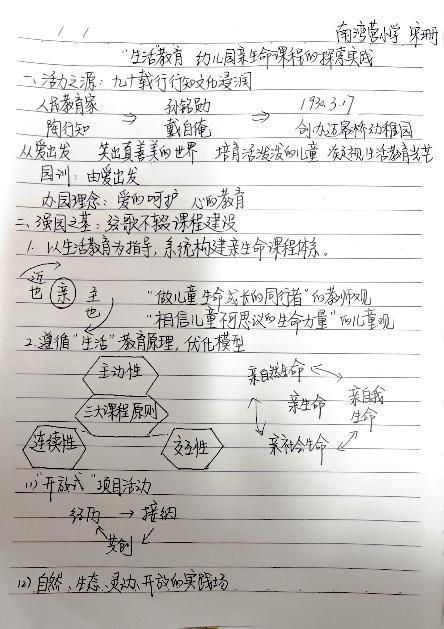 / /
南湾营小学 宋珊
"生活教育 幼儿园亲生命课程的探索实践
一、活力之源:九十载行行知文化浸润
人民教育家 ⇒ 孙铭勋 ⇒ 1934.3.17
陶行知 戴自俺 创办迈皋桥幼稚园
从爱出发 笑出真善美的世界 培育活泼泼的儿童 生活教育
园训:由爱出发
办园理念:爱的呵护 心的教育
二、强园之基:弦歌不辍课程建设
1. 以生活教育为指导,系统构建亲生命课程体系。
近也 亲 主也
"做儿童生命成长的同行者"的教师观
"相信儿童不可思议的生命力量"的儿童观
2.遵循"生活"教育原理,优化模型
主动性
三大课程原则
连续性 交互性
亲自然生命
亲生命 亲自我生命
亲社会生命
(1)"开放式"项目活动
经历 → 接纳
(2)自然、生态、灵动、开放的实践场